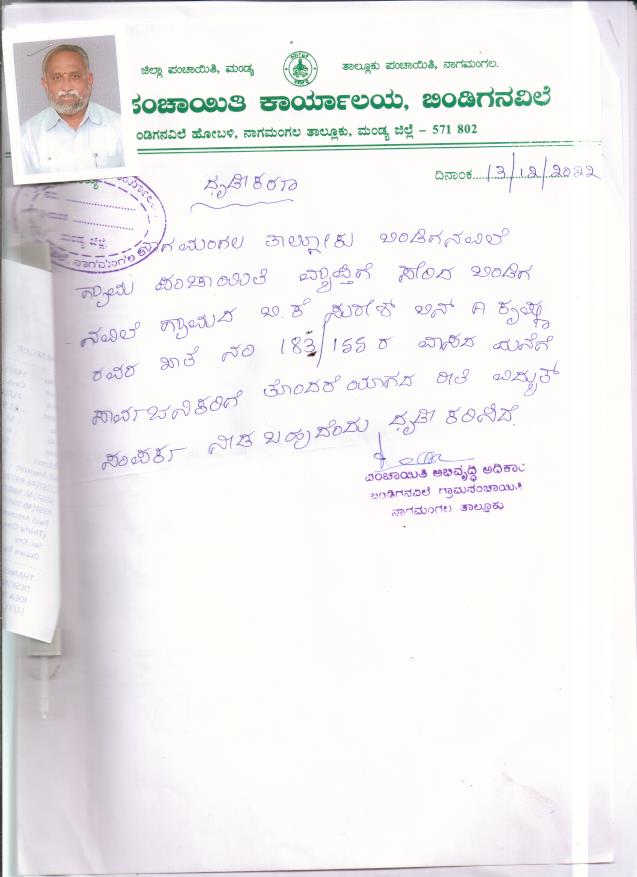 ಜಿಲ್ಲಾ ಪಂಚಾಯಿತಿ, ಮಂಡ್ಯ ತಾಲ್ಲೂಕು ಪಂಚಾಯಿತಿ, ನಾಗಮಂಗಲ.
ಪಂಚಾಯಿತಿ ಕಾರ್ಯಾಲಯ, ಬಿಂಡಿಗನವಿಲೆ
ಬಿಂಡಿಗನವಿಲೆ ಹೋಬಳಿ, ನಾಗಮಂಗಲ ತಾಲ್ಲೂಕು, ಮಂಡ್ಯ ಜಿಲ್ಲೆ – 571 802
ದಿನಾಂಕ 13/12/2022
ದೃಢೀಕರಣ
ನಾಗಮಂಗಲ ತಾಲ್ಲೂಕು ಬಿಂಡಿಗನವಿಲೆ
ಗ್ರಾಮ ಪಂಚಾಯಿತಿ ವ್ಯಾಪ್ತಿಗೆ ಸೇರಿದ ಬಿಂಡಿಗ
ನವಿಲೆ ಗ್ರಾಮದ ಬಿ.ಕೆ ಸುರೇಶ್ ಬಿನ್ A ಕೃಷ್ಣ
ರವರ ಖಾತೆ ನಂ 183/155 ರ ವಾಸದ ಮನೆಗೆ
ಸಾರ್ವಜನಿಕರಿಗೆ ತೊಂದರೆಯಾಗದ ರೀತಿ ವಿದ್ಯುತ್
ಸಂಪರ್ಕ ನೀಡಬಹುದೆಂದು ದೃಢೀಕರಿಸಿದೆ.
ಪಂಚಾಯಿತಿ ಅಭಿವೃದ್ಧಿ ಅಧಿಕಾರಿ
ಬಿಂಡಿಗನವಿಲೆ ಗ್ರಾಮಪಂಚಾಯಿತಿ
ನಾಗಮಂಗಲ ತಾಲ್ಲೂಕು